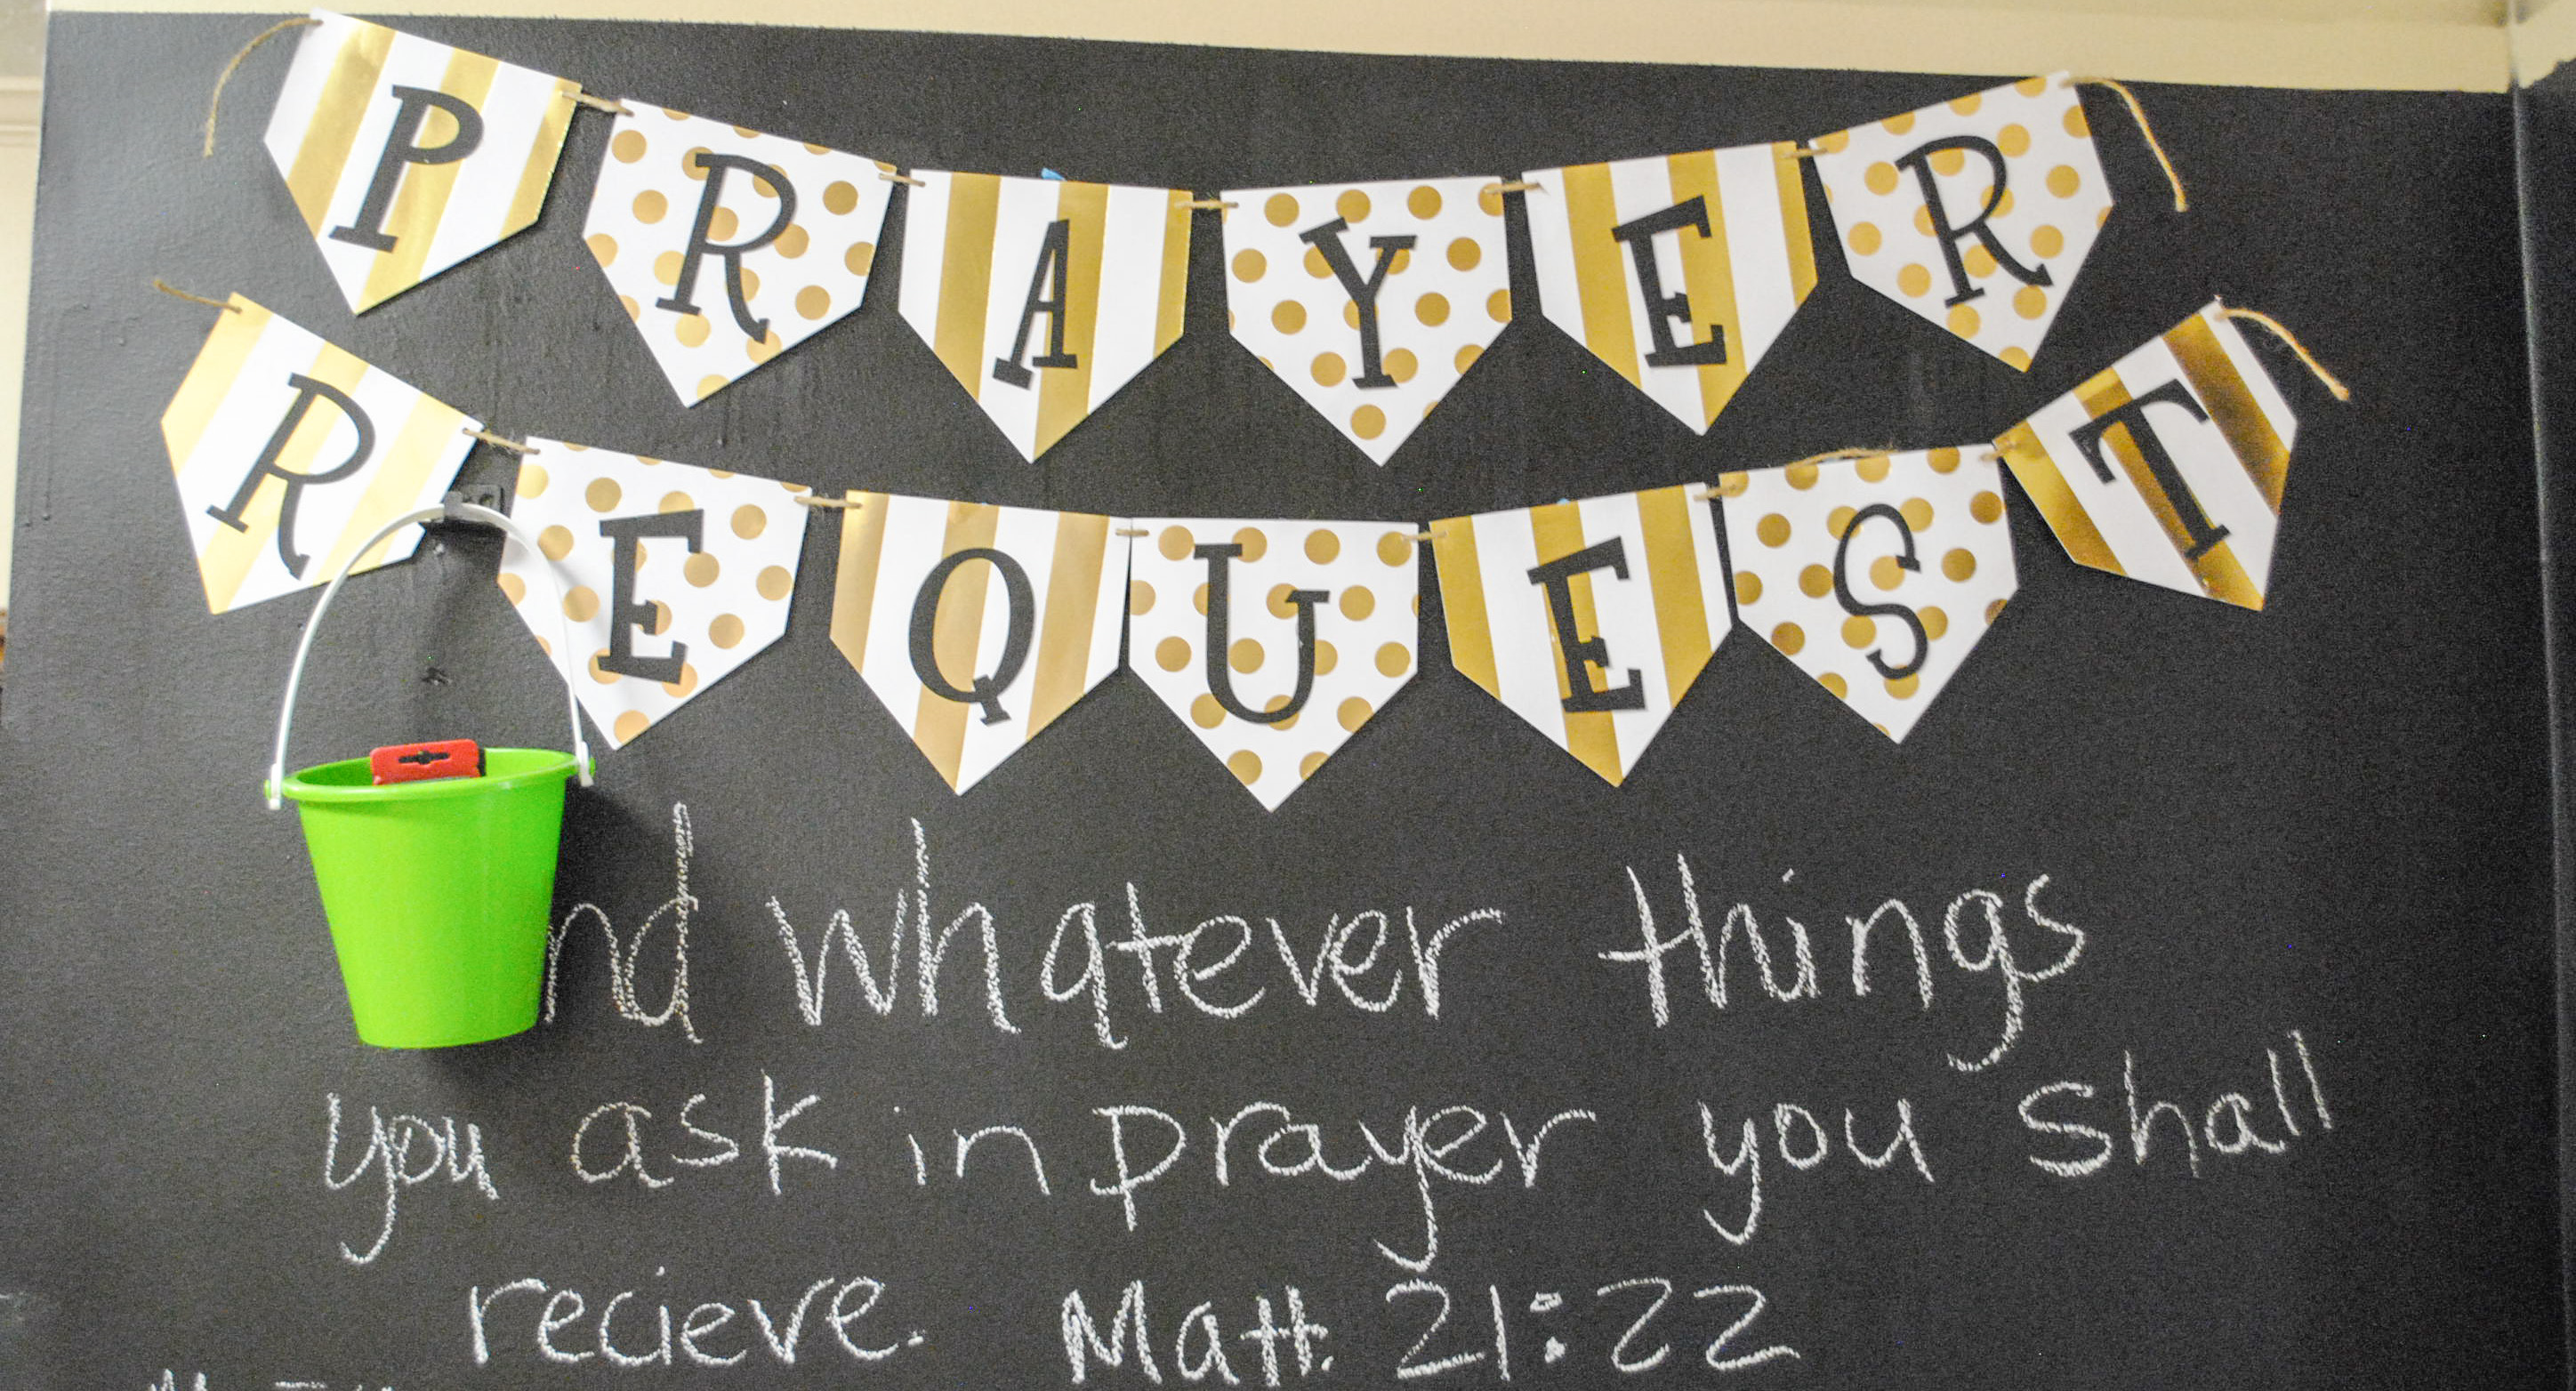 PRAYER
REQUEST
nd whatever things
you ask in prayer you shall
recieve. Matt. 21:22